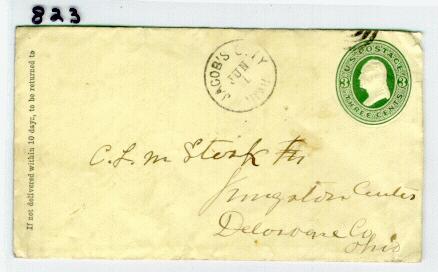 823
If not delivered within 10 days, to be returned to
JACOB'S CITY
JUN
1
UTAH
U.S. POSTAGE
THREE CENTS
C. L. M
Kingston Center
Delaware Co
Ohio